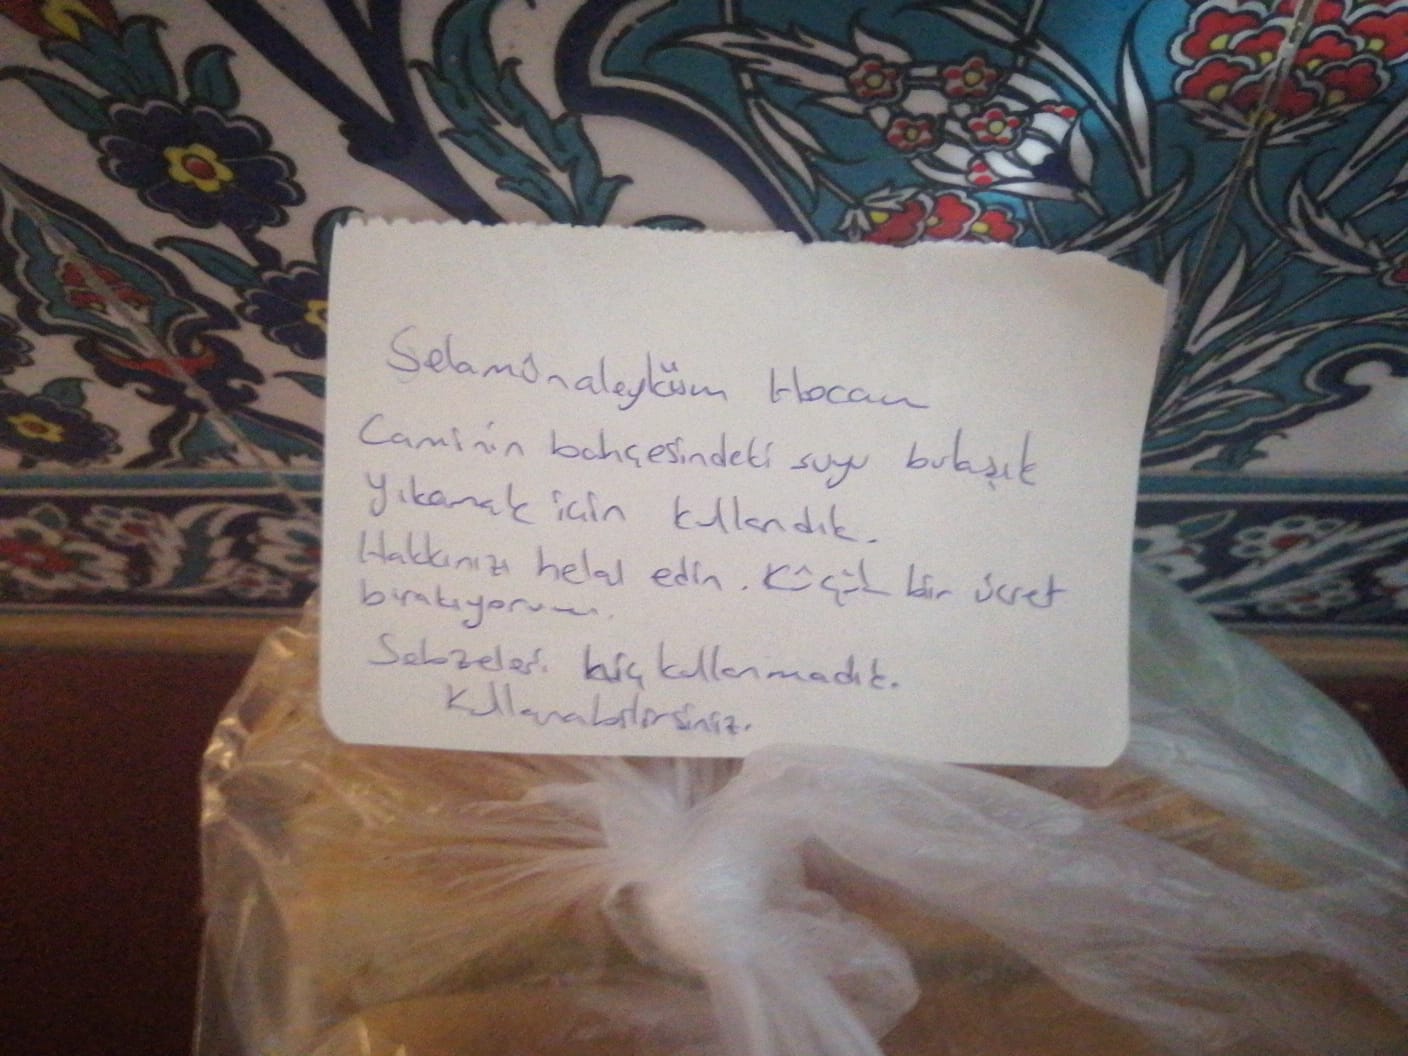 Selamünaleyküm Hocam
Caminin bahçesindeki suyu bulaşık
yıkamak için kullandık.
Hakkınızı helal edin. Küçük bir ücret
bırakıyorum.
Sebzeleri hiç kullanmadık.
Kullanabilirsiniz.